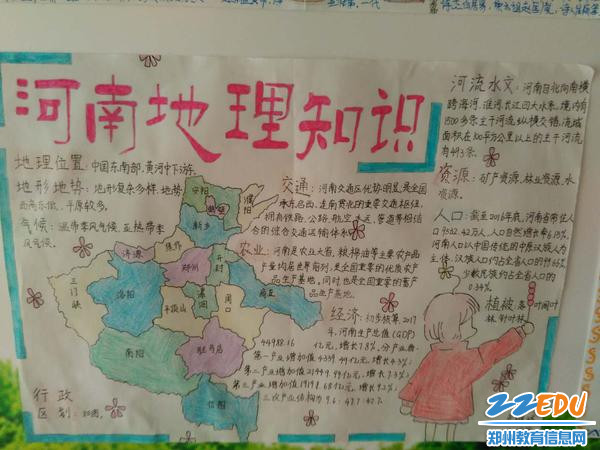 河南地理知识
地理位置：中国东南部，黄河中下游。
地形地势：地形复杂多样，地势
西高东低，平原较多。
气候：温带季风气候、亚热带季
风气候。
河流水文：河南自北向南横
跨海河、淮河、长江四大水系，境内有
1500多条主干河流纵横交错，流域
面积在100平方公里以上的主干河流
有493条。
资源：矿产资源、林业资源、水
资源。
交通：河南交通区位优势明显，是全国
承东启西、连南贯北的重要交通枢纽，
拥有铁路、公路、航空、水运、管道等相结
合的综合交通运输体系
农业：河南是农业大省，粮棉油等主要农产品
产量均居全国前列，是全国重要的优质农产
品生产基地。同时也是全国重要的畜产
品生产基地。
人口：截至2016年底，河南省常住人
口9532.42万人，人口自然增长率6.15‰，
河南人口以中国传统的中原汉族人为
主体，汉族人口约占全省人口的
少数民族约占全省人口的
植被：落叶阔叶
林、针叶林
经济：初步核算，2017
年，河南生产总值(GDP)
44988.16亿元，增长7.8%，分产业看：
第一产业增加值4339.49亿元，增长4.3%；
第二产业增加值21449.99亿元，增长7.3%；
第三产业增加值19198.68亿元，增长9.2%；
三次产业结构为9.6：47.7：42.7.
安阳
鹤壁
濮阳
新乡
济源
焦作
三门峡
洛阳
郑州
开封
商丘
平顶山
漯河
周口
南阳
驻马店
信阳
行政
区划：如图。
22EDU
郑州教育信息网